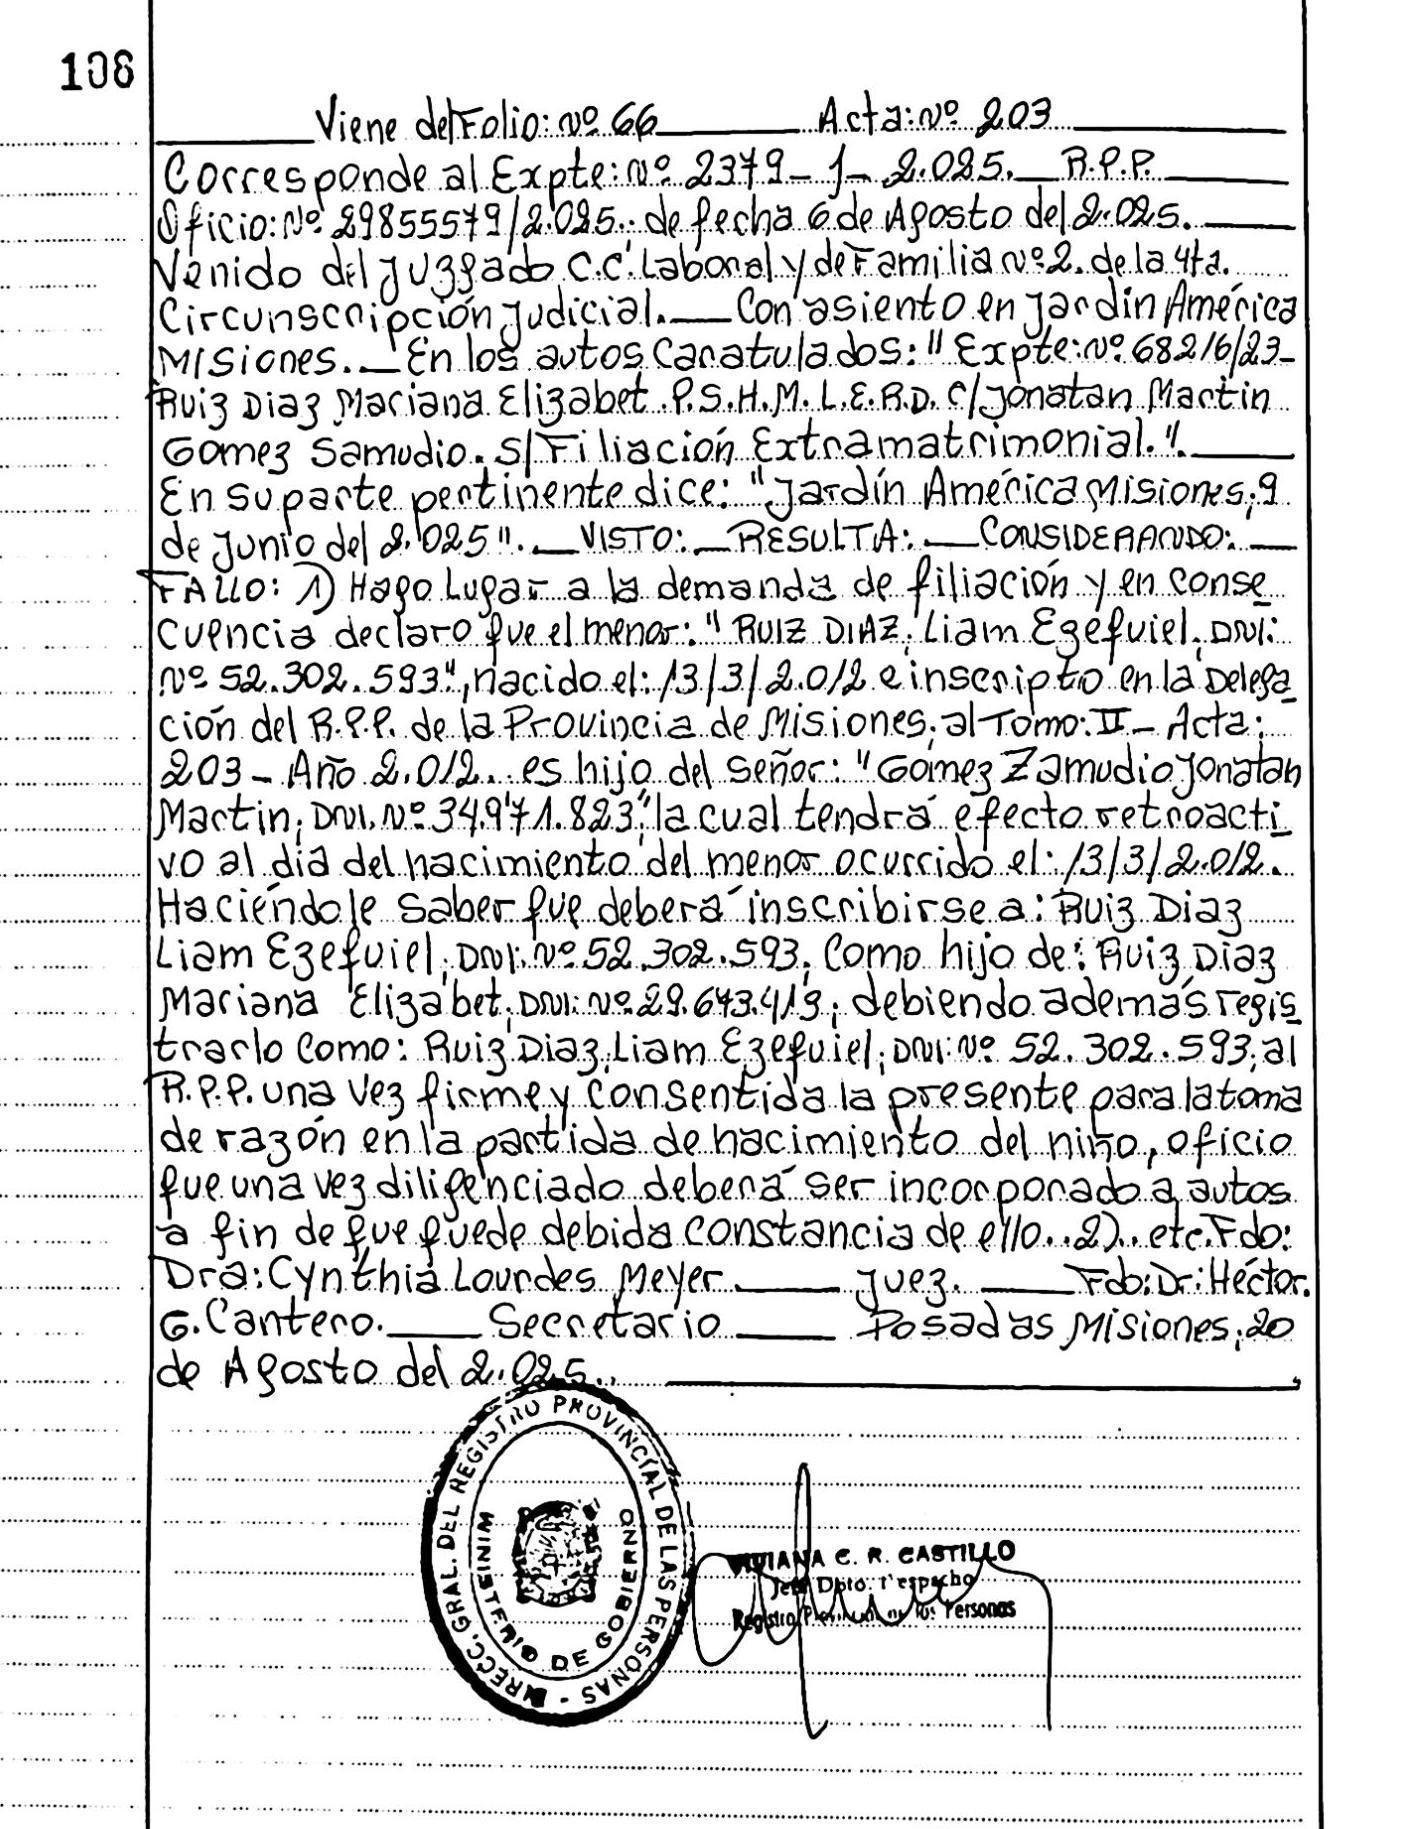 108
Viene del Folio: Nº 66 Acta: Nº 203
Corresponde al Expte: Nº 2379-J-2.025. R.P.P.
Oficio: Nº 29855579/2.025. de fecha 6 de Agosto del 2.025.
Venido del Juzgado C.C. Laboral y de Familia Nº 2. de la 4ta.
Circunscripción Judicial. Con asiento en Jardín América
Misiones. En los autos Caratulados: "Expte: Nº 68216/23-
Ruiz Diaz Mariana Elizabet. P.S.H.M.L.E.R.D. C/ Jonatan Martin
Gomez Samudio. S/ Filiación Extramatrimonial.".
En su parte pertinente dice: "Jardín América, Misiones, 9
de Junio del 2.025". VISTO: RESULTA: CONSIDERANDO:
FALLO: 1) Hago Lugar a la demanda de filiación y en conse
cuencia declaro que el menor: "RUIZ DIAZ, Liam Ezequiel, DNI:
Nº 52.302.593", nacido el: 13/3/2.012 e inscripto en la Delega
ción del R.P.P. de la Provincia de Misiones, al Tomo: II - Acta:
203 - Año 2.012. es hijo del señor: "Gomez Zamudio Jonatan
Martin, DNI. Nº 34.971.823", la cual tendrá efecto retroacti
vo al día del nacimiento del menor ocurrido el: 13/3/2.012.
Haciéndole saber que deberá inscribirse a: Ruiz Diaz
Liam Ezequiel, DNI: Nº 52.302.593, Como hijo de: Ruiz Diaz
Mariana Elizabet, DNI: Nº 29.643.413, debiendo además regis
trarlo Como: Ruiz Diaz, Liam Ezequiel, DNI: Nº 52.302.593, al
R.P.P. una vez firme y consentida la presente para la toma
de razón en la partida de nacimiento del niño, oficio
que una vez diligenciado deberá ser incorporado a autos
a fin de que quede debida constancia de ello. .2). .etc. Fdo:
Dra: Cynthia Lourdes Meyer. Juez. Fdo: Dr: Héctor.
G. Cantero. Secretario Posadas Misiones, 20
de Agosto del 2.025.
DIRECC. GRAL. DEL REGISTRO PROVINCIAL DE LAS PERSONAS -
MINISTERIO DE GOBIERNO
VIVIANA C. R. CASTILLO
Jefe Dpto. Despacho
Registro Provincial de las Personas